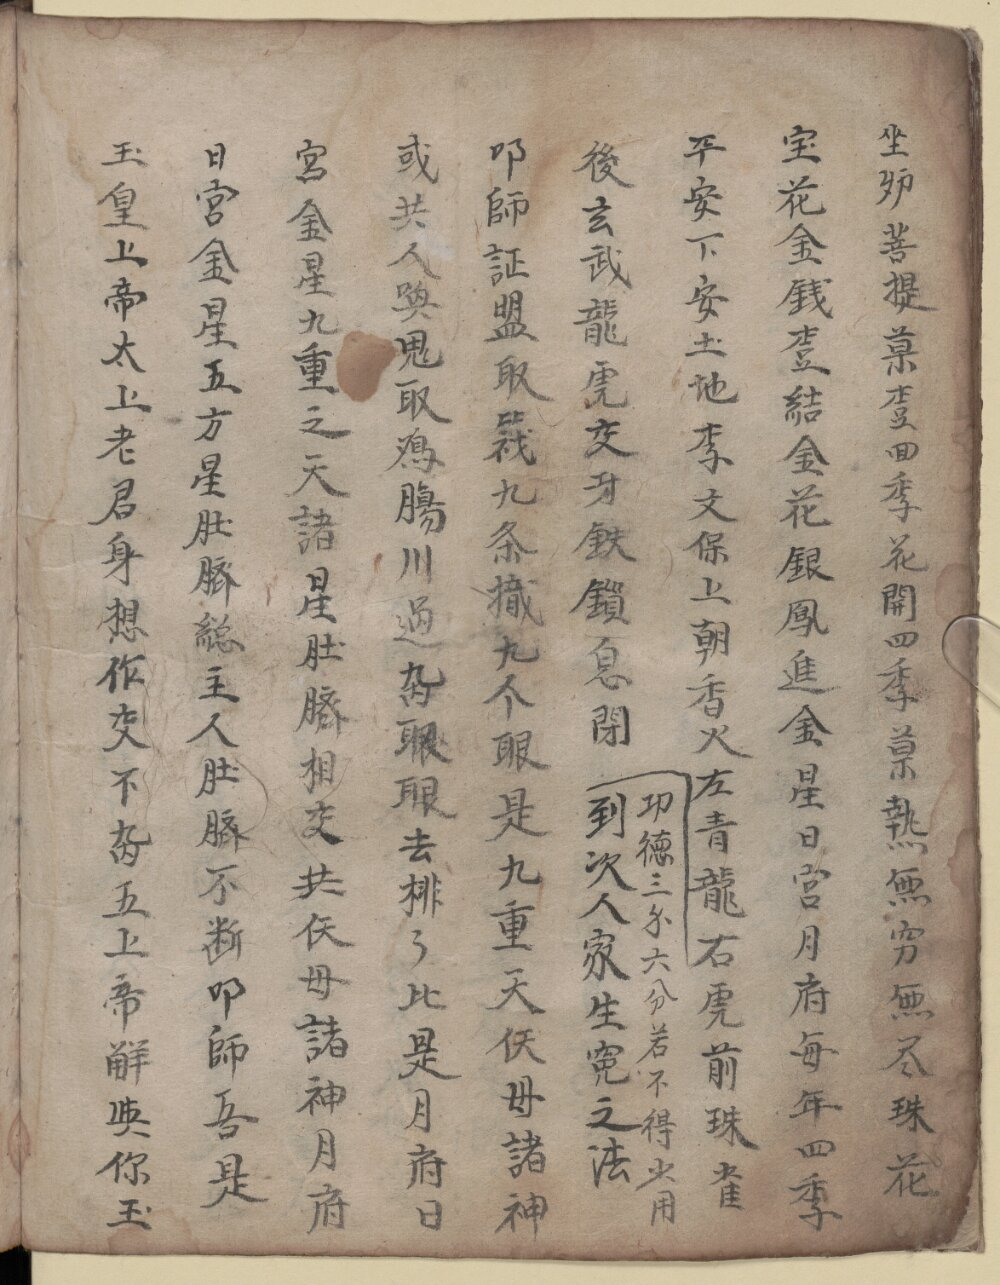 坐妒菩提菓枩回季花開四季菓熱無穷無尽珠花
宝花金銭枩結金花銀鳳進金星日宮月府每年四季
平安下安土地李文保上朝香火左青龍右虎前珠雀
後玄武龍虎交牙鉄鎖息閉
功德三分六分若不得少用
到次人家生寃之法
叩師証盟取篾九条撠九个眼是九重天仸母諸神
或共人喚鬼取鴉腸川過为眼眼去排了比是月府日
宮金星九重之天諸星肚臍相交共仸母諸神月府
日宮金星五方星肚臍総主人肚臍不断叩師吾是
玉皇上帝太上老君身想作交不为五上帝解與你玉